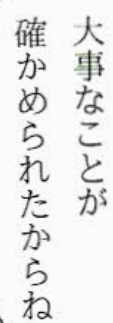 大事なことが
確かめられたからね